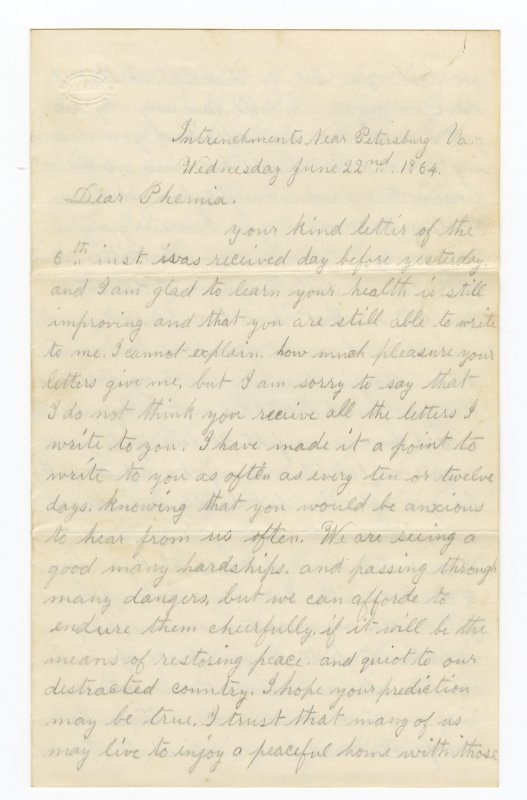 Intrenchments Near Petersburg Va.
Wednesday June 22nd. 1864.
Dear Phemia.
your kind letter of the
6th inst was received day before yesterday.
and I am glad to learn your health is still
improving. and that you are still able to write
to me. I cannot explain. how much pleasure your
letters give me, but I am sorry to say that
I do not think you receive all the letters I
write to you. I have made it a point to
write to you as often as every ten or twelve
days. knowing that you would be anxious
to hear from us often. We are seeing a
good many hardships. and passing through
many dangers, but we can afforde to
endure them cheerfully, if it will be the
means of restoring peace. and quiot to our
distracted country. I hope your prediction
may be true. I trust that many of us
may live to enjoy a peaceful home with those